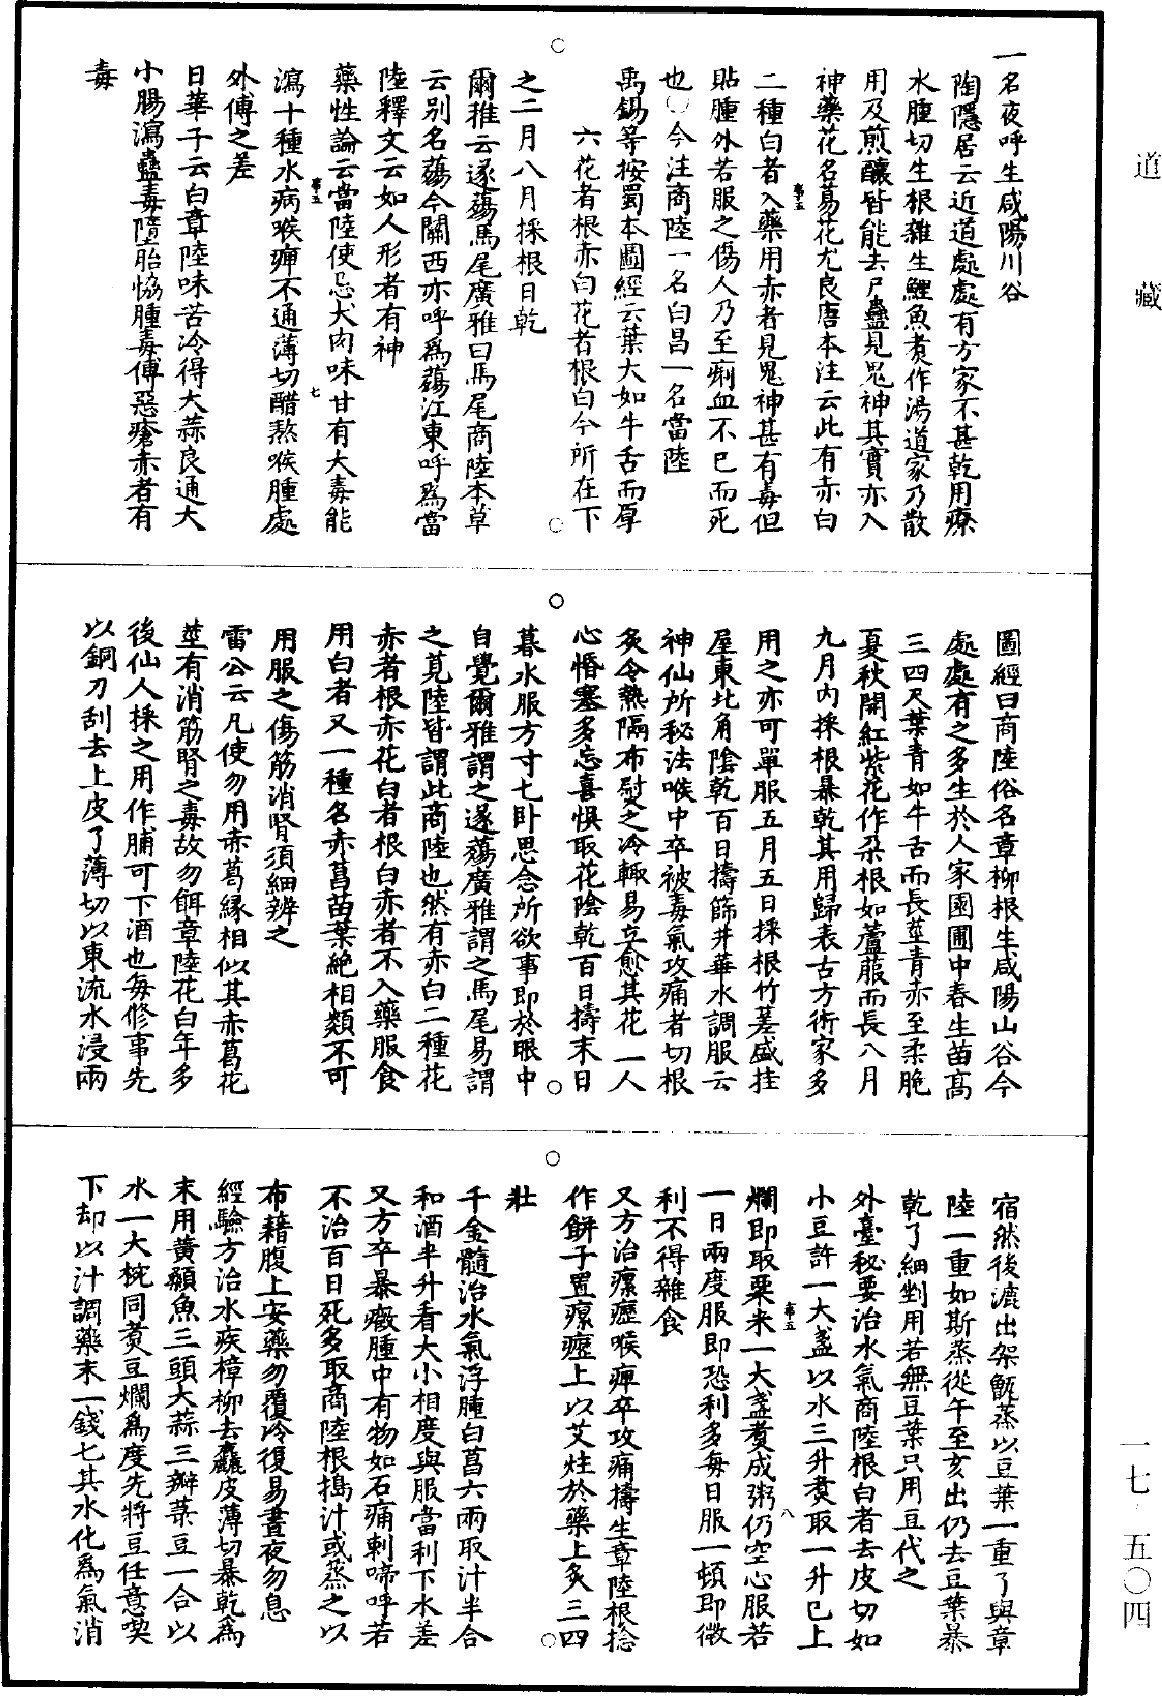 道藏
一名夜呼生咸陽川谷
陶隱居云近道處處有方家不甚乾用療
水腫切生根雜生鯉魚煑作湯道家乃散
用及煎釀皆能去尸蠱見鬼神其實亦入
神藥花名蒻花尤良唐本注云此有赤白
二種白者入藥用赤者見鬼神甚有毒但
貼腫外若服之傷人乃至痢血不巳而死
也〇今注商陸一名白昌一名當陸
禹錫等按蜀本圖經云葉大如牛舌而厚
六花者根赤白花者根白今所在下
之二月八月採根日乾
爾雅云蓫薚馬尾廣雅曰馬尾商陸本草
云別名薚今關西亦呼爲薚江東呼爲當
陸釋文云如人形者有神
藥性論云當陸使忌犬肉味甘有大毒能
瀉十種水病喉痺不通薄切醋熬喉腫處
外傅之差
日華子云白章陸味苦冷得大蒜良通大
小腸瀉蠱毒墮胎愶腫毒傅惡瘡赤者有
毒
圖經曰商陸俗名章柳根生咸陽山谷今
處處有之多生於人家園圃中春生苗高
三四尺葉青如牛舌而長莖青赤至柔脆
夏秋開紅紫花作朶根如蘆菔而長八月
九月內採根暴乾其用歸表古方術家多
用之亦可單服五月五日採根竹蔞盛挂
屋東北角陰乾百日擣篩井華水調服云
神仙所秘法喉中卒被毒氣攻痛者切根
炙令熱隔布熨之冷輒易立愈其花一人
心惛塞多忘喜悞取花陰乾百日擣末日
暮水服方寸七卧思念所欲事即於眼中
自覺爾雅謂之蓫薚廣雅謂之馬尾易謂
之莧陸皆謂此商陸也然有赤白二種花
赤者根赤花白者根白赤者不入藥服食
用白者又一種名赤葛苗葉絶相類不可
用服之傷筋消腎須細辨之
雷公云凡使勿用赤葛緣相似其赤葛花
莖有消筋腎之毒故勿餌章陸花白年多
後仙人採之用作脯可下酒也每修事先
以銅刀刮去上皮了薄切以東流水浸兩
宿然後漉出架甑蒸以豆葉一重了與章
陸一重如斯蒸從午至亥出仍去豆葉暴
乾了細剉用若無豆葉只用豆代之
外臺秘要治水氣商陸根白者去皮切如
小豆許一大盞以水三升煑取一升巳上
爛即取粟米一大盞煑成粥仍空心服若
一日兩度服即恐利多每日服一頓即微
利不得雜食
又方治瘰癧喉痺卒攻痛擣生章陸根捻
作餅子置瘰癧上以艾炷於藥上炙三四
壯
千金髓治水氣浮腫白菖六兩取汁半合
和酒半升看大小相度與服當利下水差
又方卒暴癥腫中有物如石痛刺啼呼若
不治百日死多取商陸根搗汁或蒸之以
布藉腹上安藥勿覆冷復易晝夜勿息
經驗方治水疾樟柳去麤皮薄切暴乾爲
末用黃顙魚三頭大蒜三瓣菉豆一合以
水一大椀同煑豆爛爲度先將豆任意喫
下却以汁調藥末一錢七其水化爲氣消
一七·五〇四